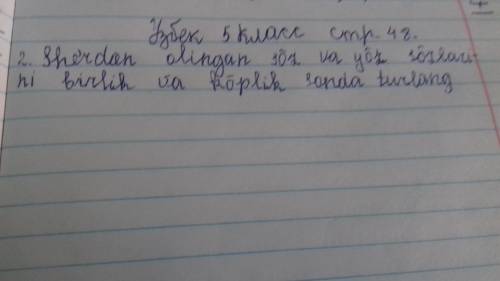 Узбек 5 класс стр. 48.
2. Sherdan olingan söz va yöz sözlari-
ni birlik va köplik sonda turlang